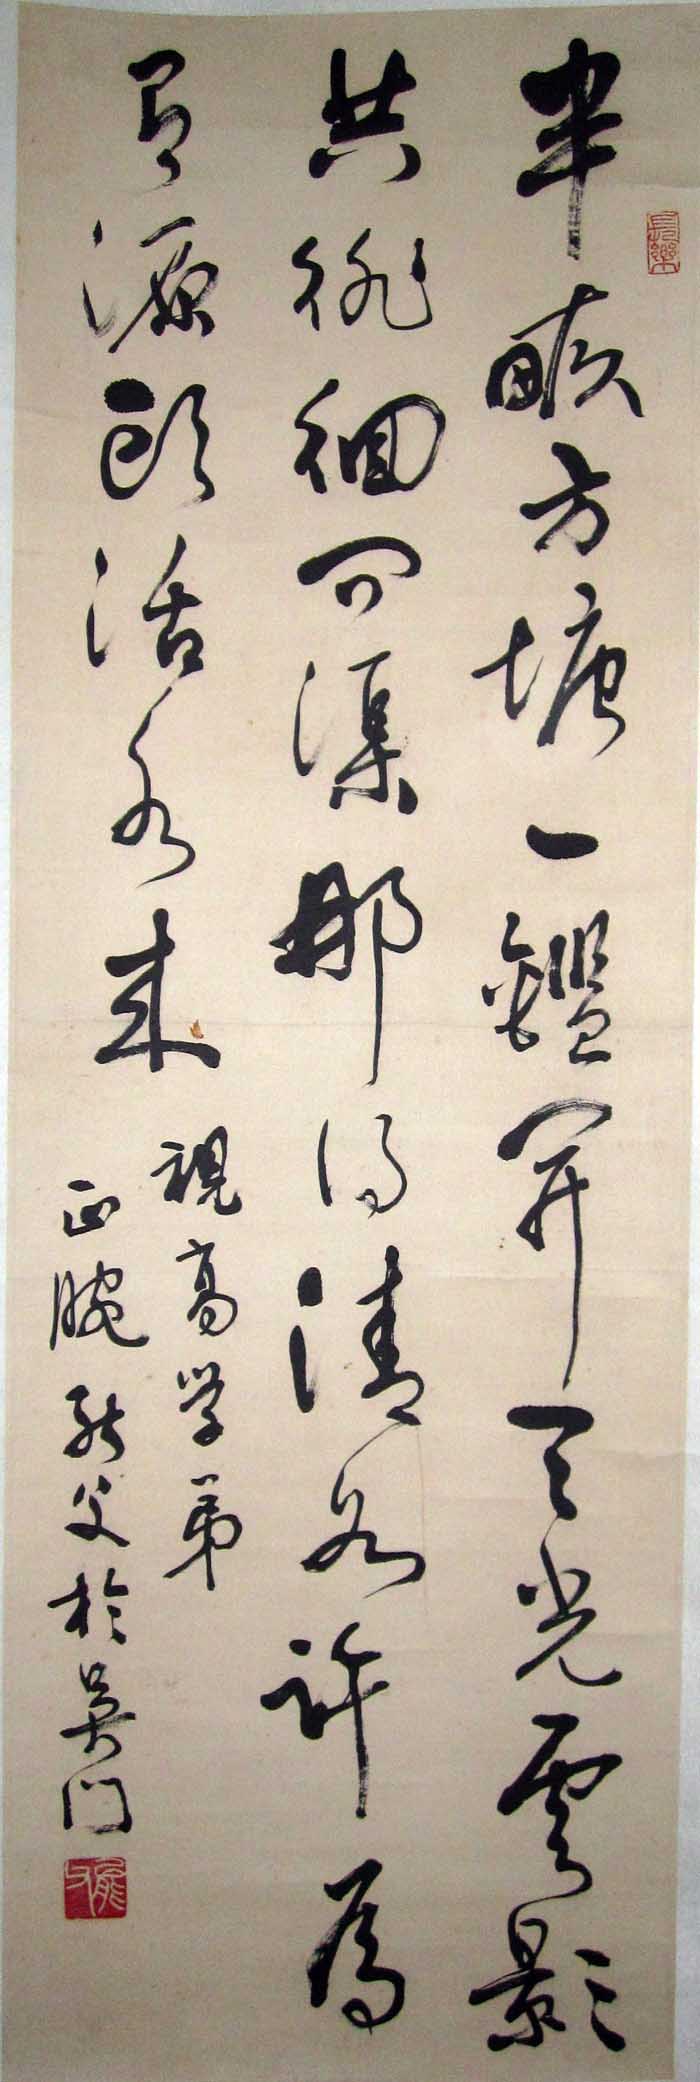 半畝方塘一鑑開天光雲影
共徘徊問渠那得清如許為
有源頭活水来
視高学弟
正腕 父於吴門
長樂